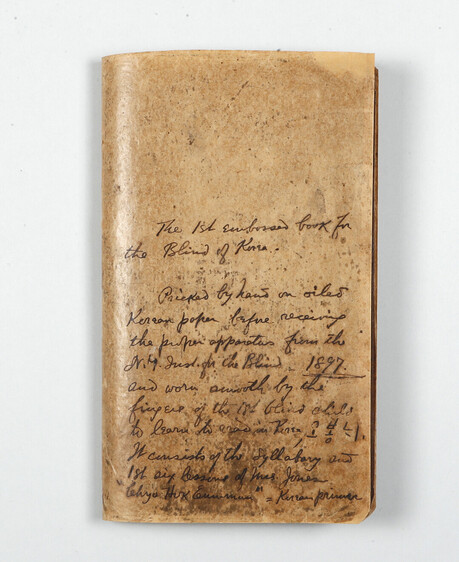 The 1st embossed book for
the Blind of Korea.
Pricked by hand on oiled
Korean paper before receiving
the proper apparatus from the
N.Y. Inst. for the Blind - 1897.
and worn smooth by the
fingers of the 1st blind child
to learn to read in Korea
It consists of the Syllabary and
1st six lessons of Mrs. Jones
= Korean primer